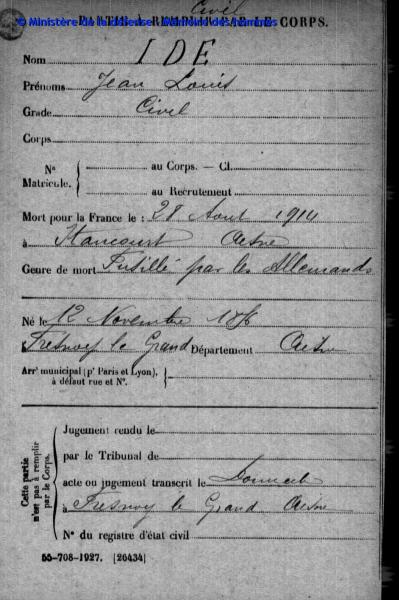 Civil
PARTIE À REMPLIR PAR LE CORPS.
© Ministère de la défense - Mémoire des hommes
Nom IDE
Prénoms Jean Louis
Grade Civil
Corps
Nº Matricule. { au Corps. — Cl.
au Recrutement
Mort pour la France le : 28 Aout 1914
à Haucourt Aisne
Genre de mort Fusillé par les Allemands
Né le 12 Novembre
Fresnoy le Grand Département Aisne
Arrᵗ municipal (pʳ Paris et Lyon),
à défaut rue et Nº.
Cette partie n'est pas à remplir par le Corps.
Jugement rendu le
par le Tribunal de
acte ou jugement transcrit le
à Fresnoy le Grand Aisne
Nº du registre d'état civil
55-708-1927. [26434]